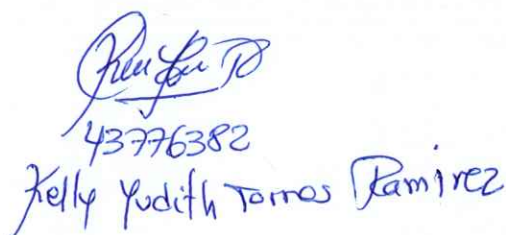 43776382
Kelly Yudith Torres Ramirez